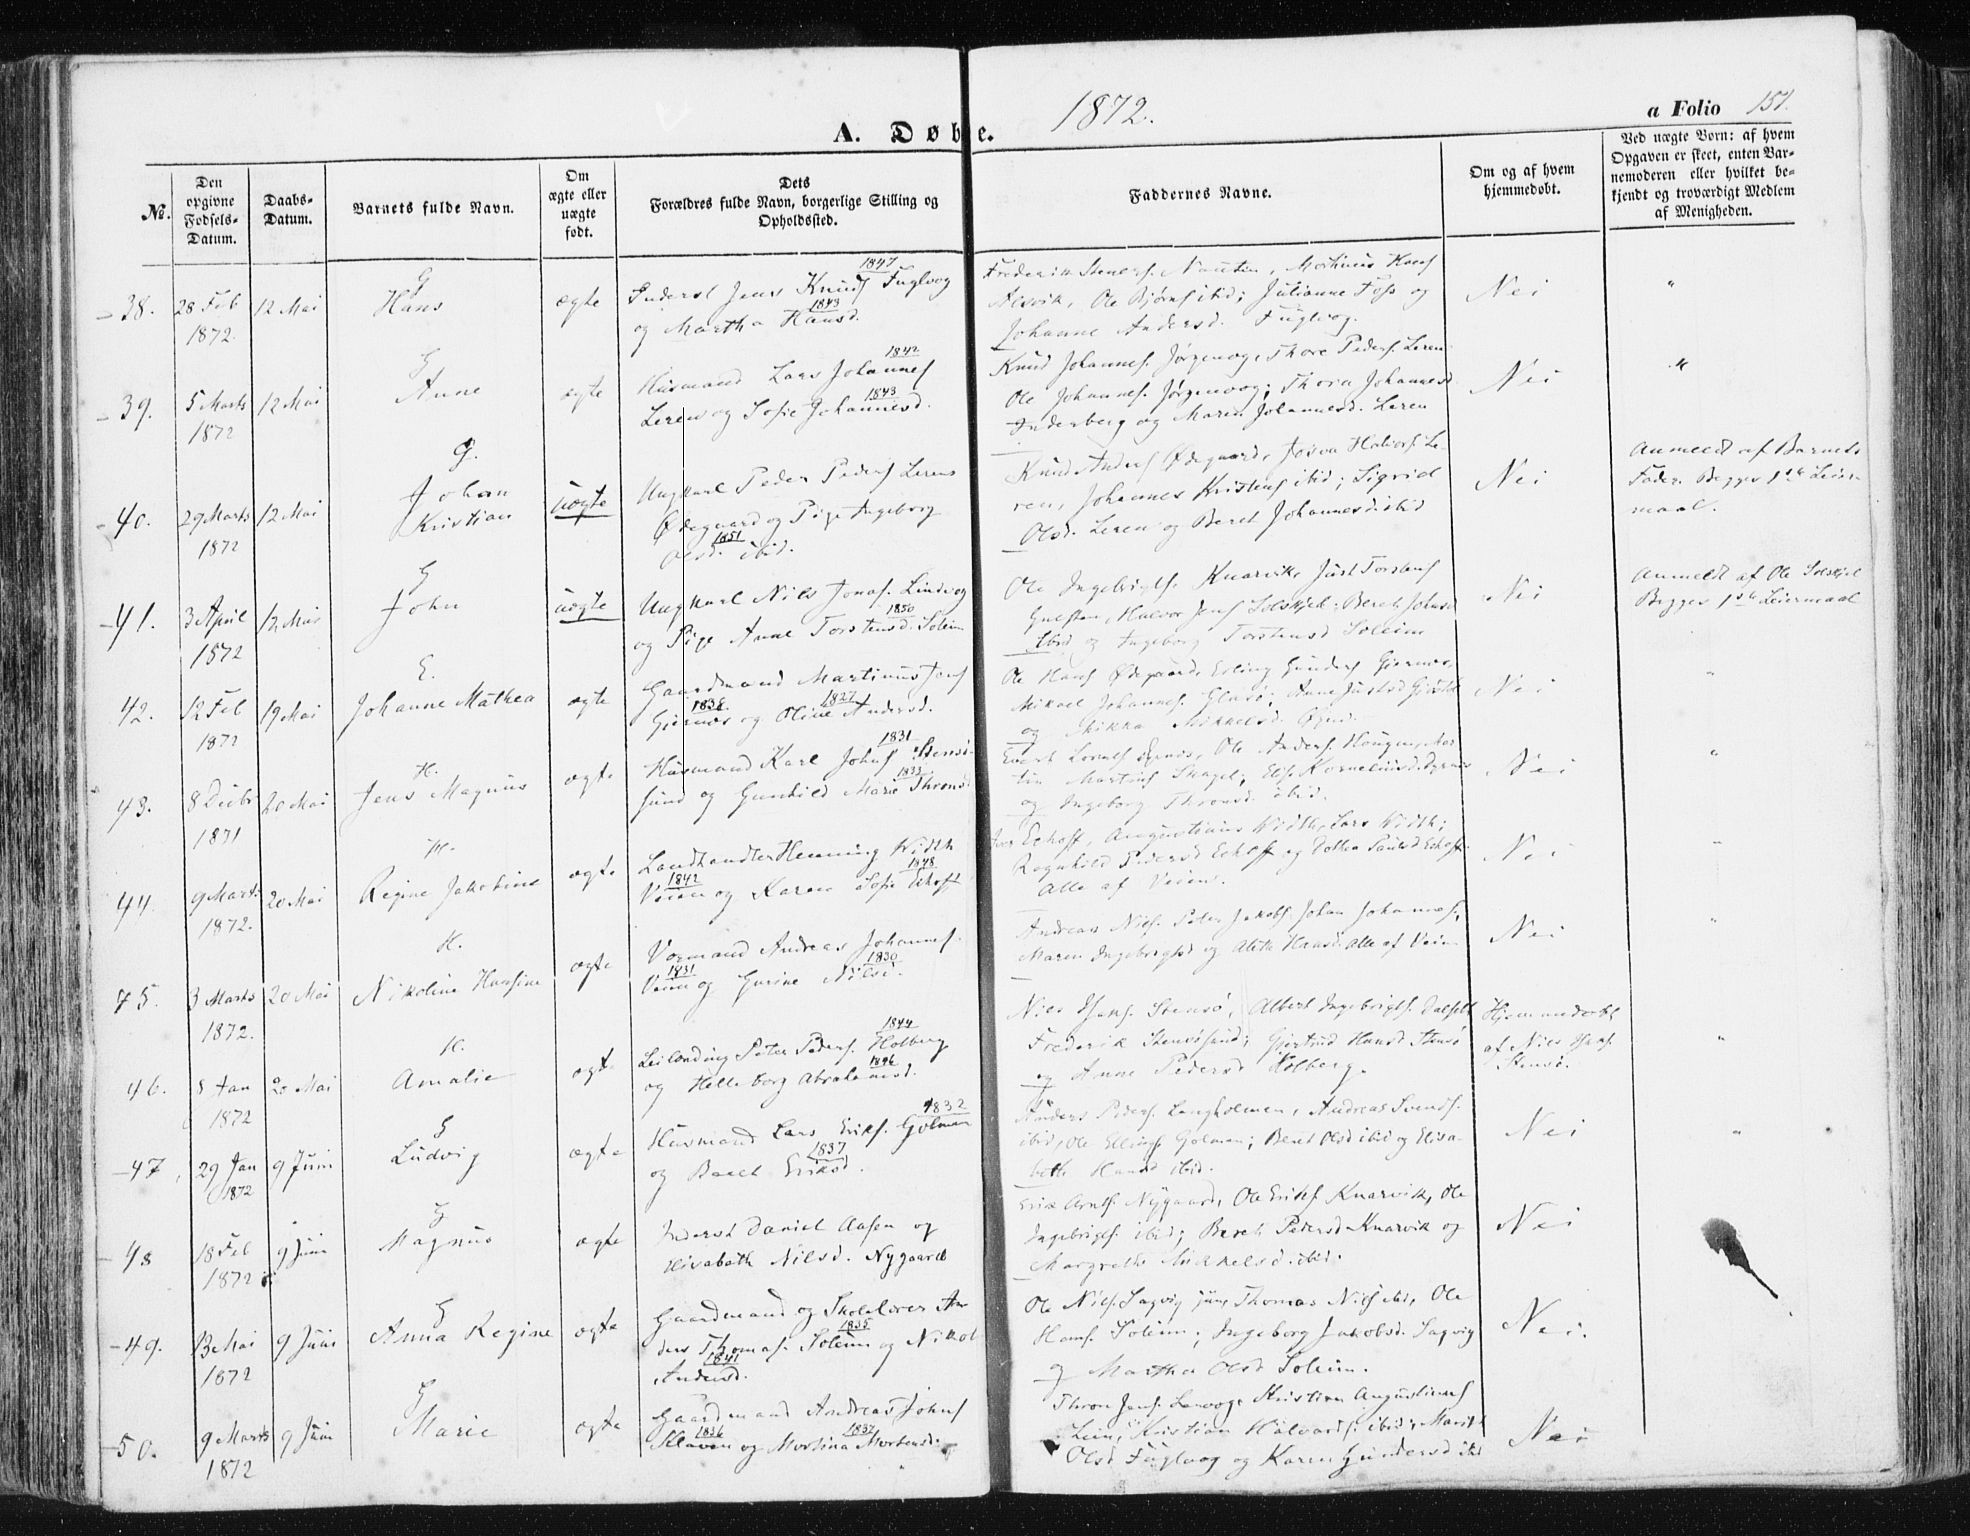 1872.
a Folio 151.
A. Døbte.
No.
Den opgivne Fødsels-Datum.
Daabs-Datum.
Barnets fulde Navn.
Om ægte eller uægte født.
Dets Forældres fulde Navn, borgerlige Stilling og Opholdssted.
Faddernes Navne.
Om og af hvem hjemmedøbt.
Ved uægte Børn: af hvem Opgaven er skeet, enten Barnemoderen eller hvilket bekjendt og troværdigt Medlem af Menigheden.
38. 28 Feb 1872. 12 Mai
G
Hans
ægte
1847
Inderst Jens Knuds Fuglvog
1843
og Martha Hansd.
Frederik Stener. Nausten, Martinus Hans
Alsvik, Ole Bjørns ibid; Julianne Foss og
Johanne Andersd. Fuglvog.
Nei
"
39. 5 Marts 1872 12 Mai
G
Anne
ægte
1842
Husmand Lars Johannes
1843
Leren og Sofie Johannesd.
Knud Johannes. Jørgenvog, Thore Peders. Leren
Ole Johannes. Jørgenvog; Thora Johannesd.
Inderberg og Maren Johannesd. Leren
Nei
"
40. 29 Marts 1872 12 Mai
G.
Johan
Kristian
uægte
Ungkarl Peder Peders Lerens
Ødegaard og Pige Ingeborg
1851
Olsd. ibid.
Knud Anders Ødegaard, Josva Halvors. Le-
ren, Johannes Kristens ibid; Sigrid
Olsd. Leren og Beret Johannesd. ibid
Nei
Anmeldt af Barnets
Fader. Begges 1ste Leier-
maal.
41. 3 April 1872 12 Mai
G
John
uægte
Ungkarl Nils Jonas. Lindvog
1850
og Pige Anne Torstensd. Soleim
Ole Ingebrigts. Knarvik, Just Torstens
Gulsten, Halvor Jens Solskjel; Beret Johnsd
Ibid og Ingeborg Torstensd Soleim
Nei
Anmeldt af Ole Solskjel
Begges 1ste Leiermaal
42. 12 Feb 1872 19 Mai
E.
Johanne Mathea
ægte
Gaardmand Martinus Jens
1838 1837
Gjernes og Oline Andersd.
Ole Hans Ødegaard, Erling Gunders Gjernes,
Mikael Johannes. Glasø; Anne Justsd
og Mikkelsd.
Nei
"
43. 8 Decbr 1871 20 Mai
H.
Jens Magnus
ægte
1831
Husmand Karl Johns Stensø-
1833
sund og Gunhild Marie Thronsd
Ole Anders. Hougen, Mar-
tin Martins Skagel; Elis. Korneliusd. Dyrnes
og Ingeborg Thronsd ibid.
Nei
"
44 9 Marts 1872. 20 Mai
H.
Regine Jakobine
ægte
Landhandler Henning Width
1842 1848
Veien og Karen Sofie Eckoff
Iver Eckoff, Augustinus Width, Lars Width;
Ragnhild Pedersd Eckoff og Paulsd Eckoff.
Alle af Veien.
Nei
"
45. 3 Marts 1872. 20 Mai
H.
Nikoline Hansine
ægte
Vormand Andreas Johannes.
1831 1830
Veien og Gurine Nilsd.
Andreas Nils. Peter Jakobs. Johan Johannes.
Maren Ingebrigtsd og Aleth Hansd. Alle af Veien
Nei
"
46. 8 Jan 1872 20 Mai
H.
Amalie
ægte
1844
Leilending Peter Peders. Holberg
1846
og Helleborg Abrahamsd.
Nils Jens. Stensø, Albert Ingebrigts.
Frederik Stensøsund; Gjertrud Hansd Stensø
og Anne Pedersd Holberg.
Hjemmedøbt
af Nils Jens.
Stensø.
"
47. 29 Jan 1872 9 Juni
G
Ludvig
ægte
1832
Husmand Lars Eriks. Golmen
1837
og Beret Eriksd.
Anders Peders. Langholmen, Andreas Svends.
ibid, Ole Ellings Golmen; Beret Olsd ibid og Elisa-
beth Hansd ibid.
Nei
"
48 18 Feb 1872 9 Juni
G
Magnus
ægte
Inderst Daniel Aasen og
Elisabeth Nilsd. Nygaard
Erik Arnts. Nygaard, Ole Eriks. Knarvik, Ole
Ingebrigts. ibid; Bereth Pedersd. Knarvik og
Margrethe Mikkelsd. ibid.
Nei
49. 13 Mai 1872 9 Juni
G
Anna Regine
ægte
Gaardmand og Skolelærer An-
1835
ders Thomas. Soleim og Nikol-
1841
Andersd.
Ole Nils. Sagvig jun, Thomas Nils ibid, Ole
Hans. Soleim; Ingeborg Jakobsd. Sagvig
og Martha Olsd Soleim.
Nei.
50. 9 Marts 1872 9 Juni
G
Marie
ægte
Gaardmand Andreas Johns
1836 1837
Klaven og Martina Mortensd.
Thron Jens. Lervog, Kristian Augustinus
Leim, Kristian Halvards. ibid; Marith
Olsd Fuglvog og Karen Gundersd ibid
Nei